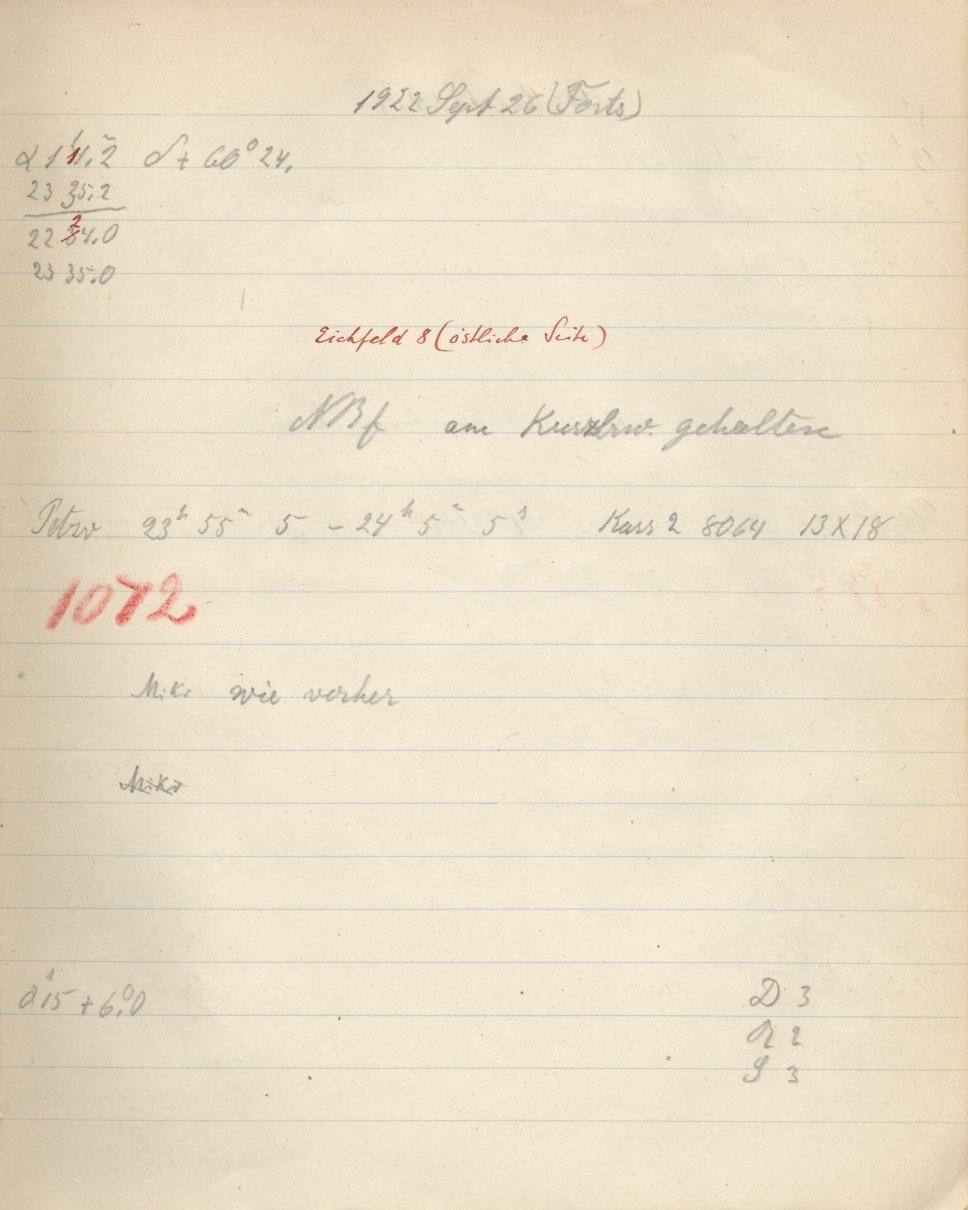 1922 Sept 26 (Forts)
α 1ʰ 11.ᵐ2 δ + 60° 24.
23 35.2
22 24.0
23 35.0
Eichfeld 8 (östliche Seite)
NBf am gehalten
Petzv 23ʰ 55ᵐ 5 – 24ʰ 5ᵐ 5ˢ Kass 2 8064 13X18
1072
Mikr wie vorher
Mikr
0ʰ15 + 6.°0
D 3
R 2
S 3